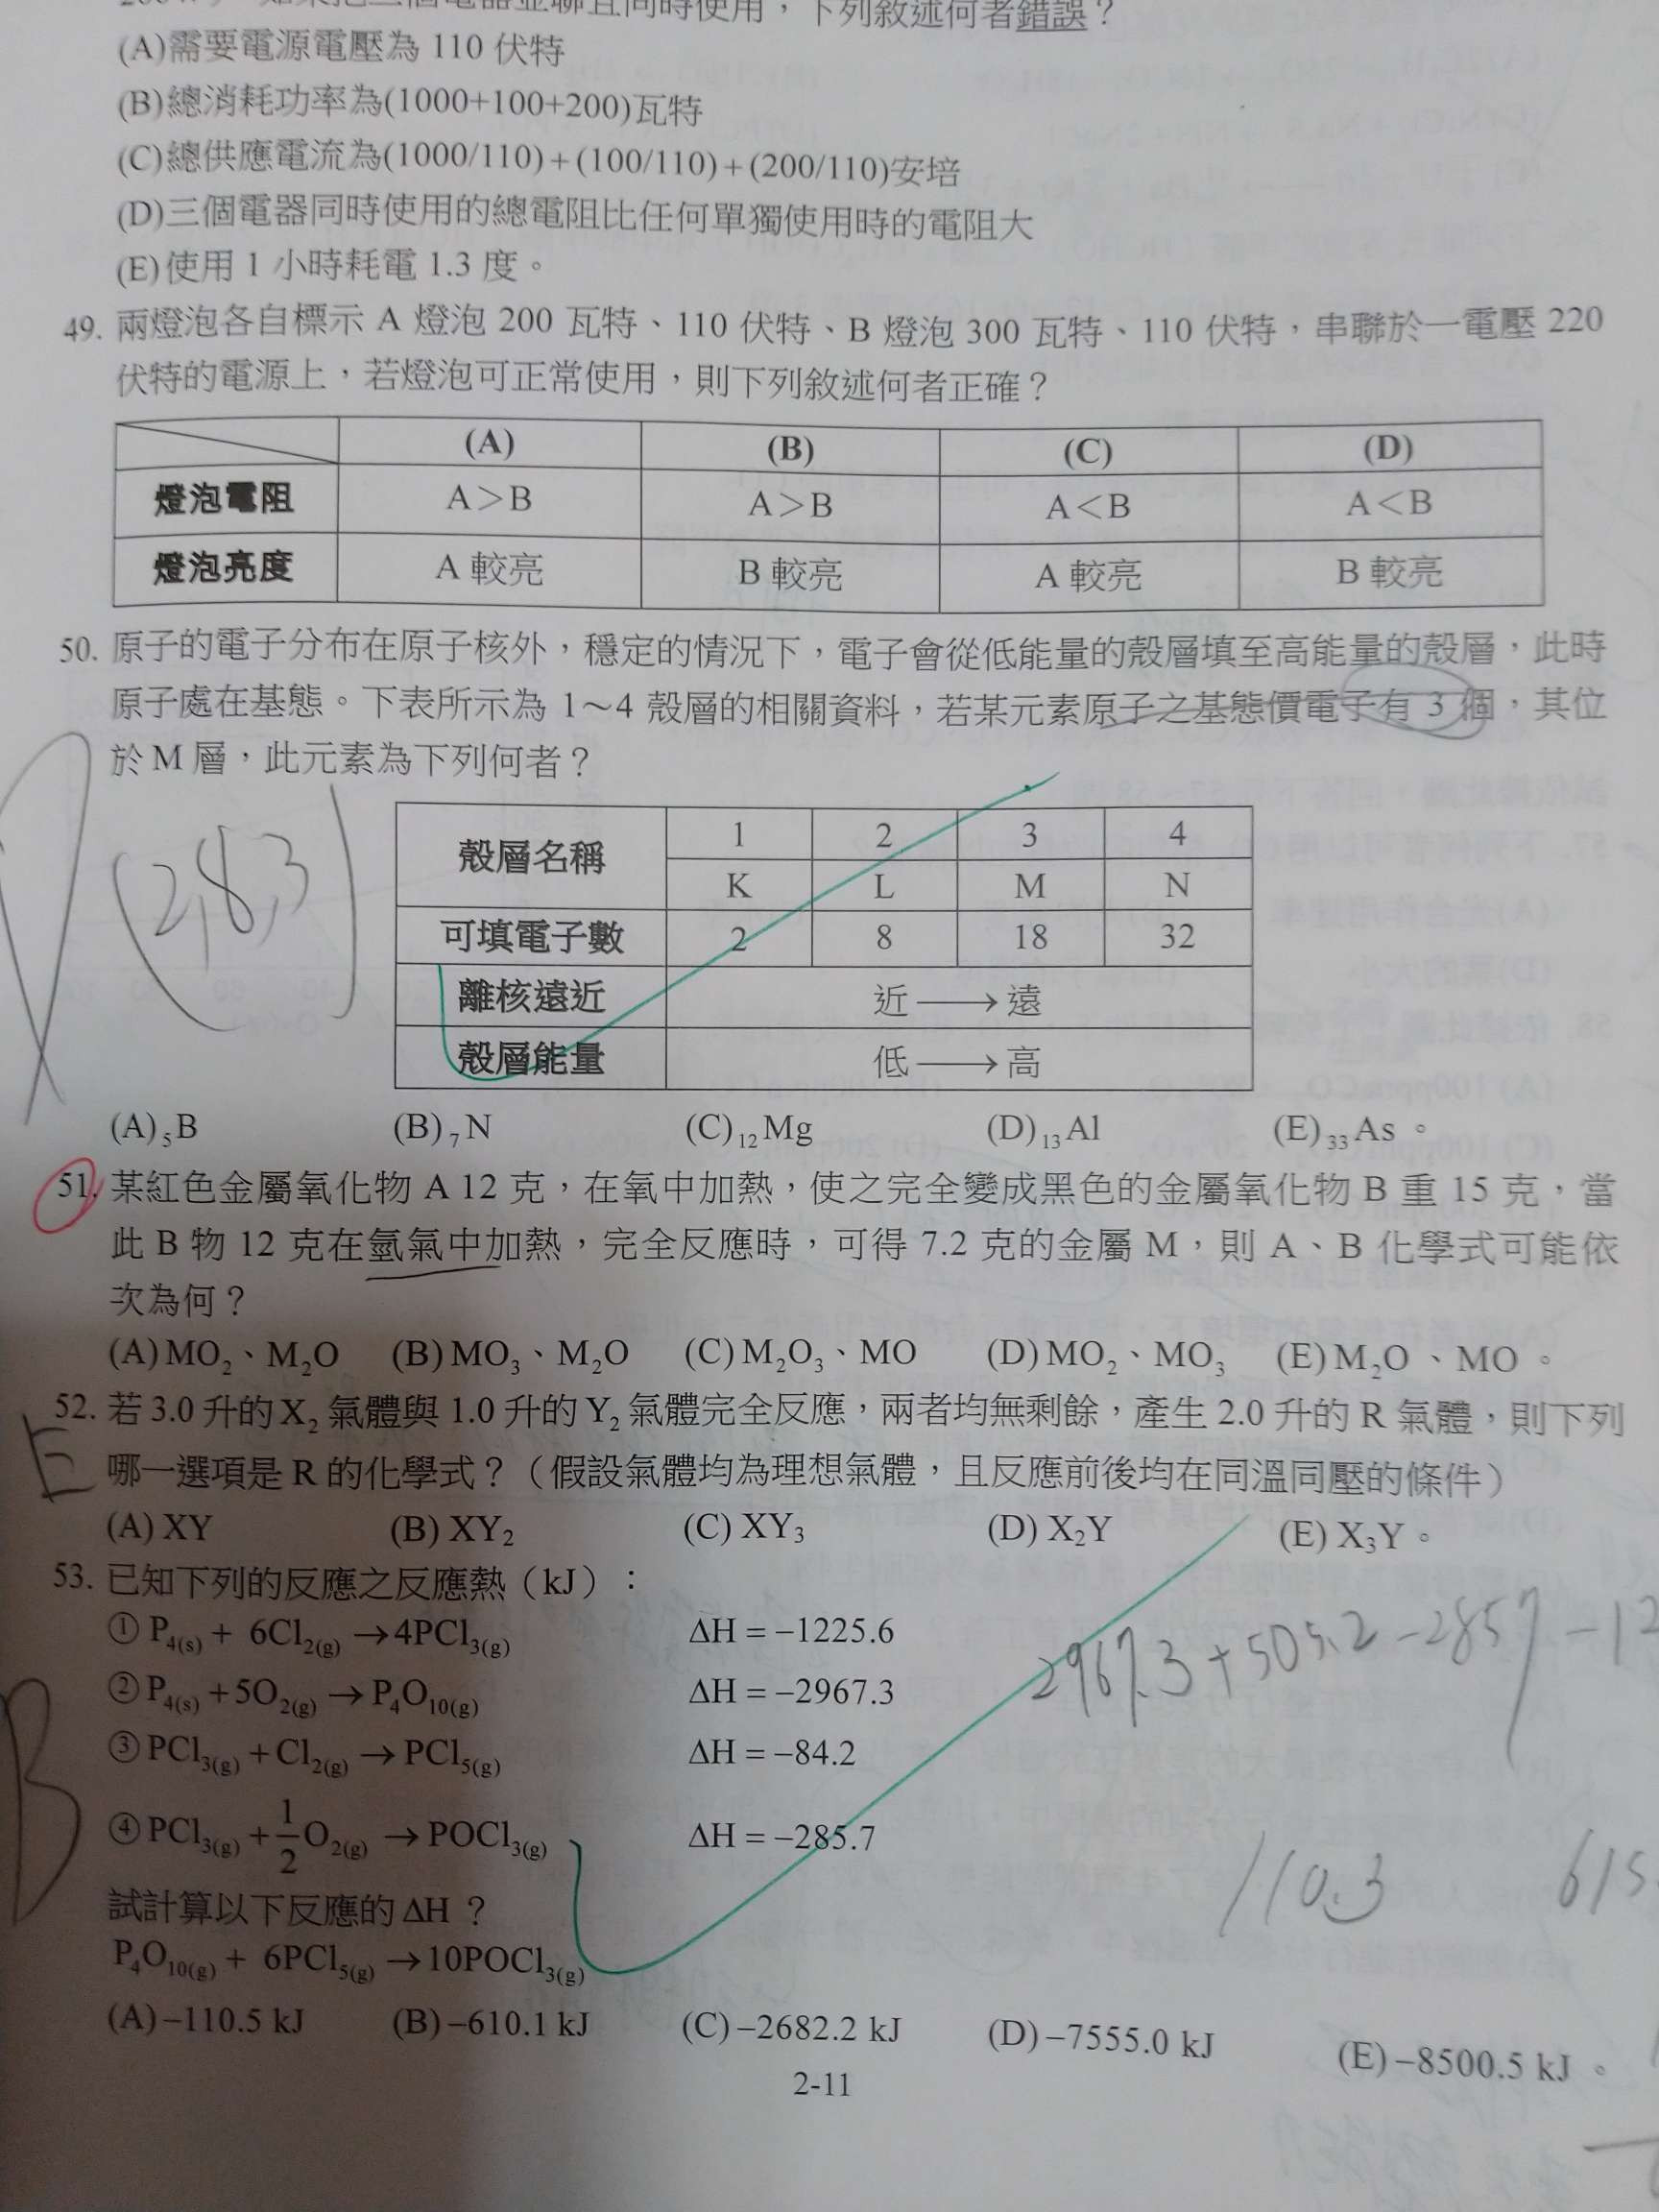 下列敘述何者錯誤？
(A)需要電源電壓為 110 伏特
(B)總消耗功率為(1000+100+200)瓦特
(C)總供應電流為(1000/110)+(100/110)+(200/110)安培
(D)三個電器同時使用的總電阻比任何單獨使用時的電阻大
(E)使用 1 小時耗電 1.3 度。
49. 兩燈泡各自標示 A 燈泡 200 瓦特、110 伏特、B 燈泡 300 瓦特、110 伏特，串聯於一電壓 220
伏特的電源上，若燈泡可正常使用，則下列敘述何者正確？
(A) (B) (C) (D)
燈泡電阻 A＞B A＞B A＜B A＜B
燈泡亮度 A 較亮 B 較亮 A 較亮 B 較亮
50. 原子的電子分布在原子核外，穩定的情況下，電子會從低能量的殼層填至高能量的殼層，此時
原子處在基態。下表所示為 1～4 殼層的相關資料，若某元素原子之基態價電子有 3 個，其位
於 M 層，此元素為下列何者？
(2,8,3)
殼層名稱 1 2 3 4
K L M N
可填電子數 2 8 18 32
離核遠近 近→遠
殼層能量 低→高
(A) ₅B (B) ₇N (C) ₁₂Mg (D) ₁₃Al (E) ₃₃As。
51. 某紅色金屬氧化物 A 12 克，在氧中加熱，使之完全變成黑色的金屬氧化物 B 重 15 克，當
此 B 物 12 克在氫氣中加熱，完全反應時，可得 7.2 克的金屬 M，則 A、B 化學式可能依
次為何？
(A) MO₂、M₂O (B) MO₃、M₂O (C) M₂O₃、MO (D) MO₂、MO₃ (E) M₂O、MO。
52. 若 3.0 升的 X₂ 氣體與 1.0 升的 Y₂ 氣體完全反應，兩者均無剩餘，產生 2.0 升的 R 氣體，則下列
E
哪一選項是 R 的化學式？（假設氣體均為理想氣體，且反應前後均在同溫同壓的條件）
(A) XY (B) XY₂ (C) XY₃ (D) X₂Y (E) X₃Y。
53. 已知下列的反應之反應熱（kJ）：
① P₄(s) + 6Cl₂(g) →4PCl₃(g) ΔH = −1225.6
2967.3+505.2-2857-12
② P₄(s) +5O₂(g) → P₄O₁₀(g) ΔH = −2967.3
③ PCl₃(g) +Cl₂(g) → PCl₅(g) ΔH = −84.2
B
④ PCl₃(g) + 1/2 O₂(g) → POCl₃(g) ΔH = −285.7
110.3 615.
試計算以下反應的 ΔH ？
P₄O₁₀(g) + 6PCl₅(g) →10POCl₃(g)
(A) −110.5 kJ (B) −610.1 kJ (C) −2682.2 kJ (D) −7555.0 kJ (E) −8500.5 kJ。
2-11